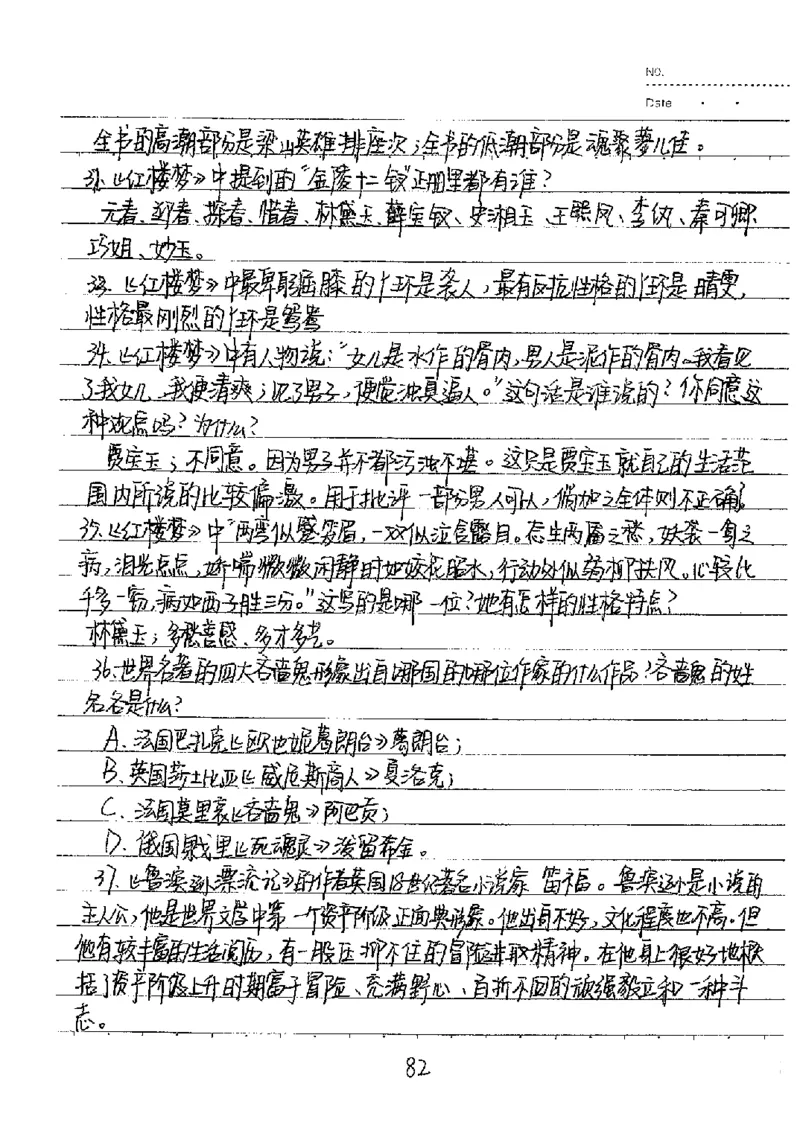 No.
Date
全书的高潮部分是梁山英雄排座次；全书的低潮部分是魂聚蓼儿洼。
《红楼梦》中提到的"金陵十二钗"正册里都有谁？
元春、迎春、探春、惜春、林黛玉、薛宝钗、史湘玉、王熙凤、李纨、秦可卿
巧姐、妙玉。
33.《红楼梦》中最卑躬屈膝的丫环是袭人，最有反抗性格的丫环是晴雯，
性格最刚烈的丫环是鸳鸯
34.《红楼梦》中有人物说："女儿是水作的骨肉，男人是泥作的骨肉。我看见
了我女儿，我便清爽；见了男子，便觉浊臭逼人。"这句话是谁说的？你同意这
种观点吗？为什么？
贾宝玉；不同意。因为男子并不都污浊不堪。这只是贾宝玉就自己的生活范
围内所说的比较偏激。用于批评一部分男人可以，倘加之全体则不正确。
35.《红楼梦》中"两弯似蹙笼眉，一双似泣含露目。态生两靥之愁，妖袭一身之
病，泪光点点，娇喘微微。闲静时如姣花照水，行动处似弱柳扶风。心较比
干多一窍，病如西子胜三分。"这写的是哪一位？她有怎样的性格特点？
林黛玉；多愁善感、多才多艺。
36.世界名著的四大吝啬鬼形象出自哪国的哪位作家的什么作品？吝啬鬼的姓
名各是什么？
A.法国巴扎克《欧也妮葛朗台》葛朗台；
B.英国莎士比亚《威尼斯商人》夏洛克；
C.法国莫里哀《吝啬鬼》阿巴贡；
D.俄国果戈里《死魂灵》泼留希金。
37.《鲁滨逊漂流记》的作者英国18世纪著名小说家 笛福。鲁滨逊是小说的
主人公，他是世界文学中第一个资产阶级正面典型形象。他出身不好，文化程度也不高。但
他有较丰富的生活阅历，有一股压抑不住的冒险进取精神。在他身上很好地概
括了资产阶级上升时期富于冒险、充满野心、百折不回的顽强毅立和一种斗
志。
82